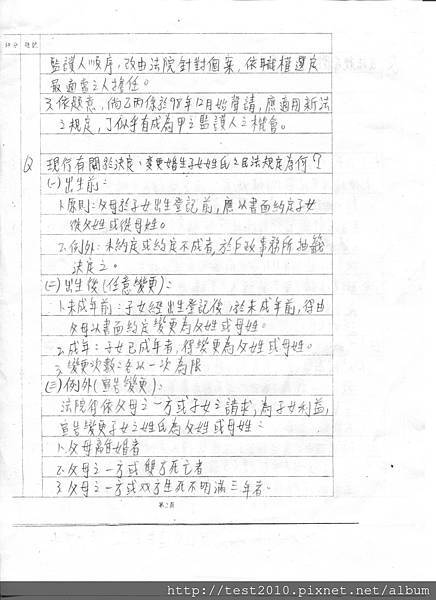 監護人順序，改由法院針對個案，依職權選定
最適當之人擔任。
3.依題意，倘乙丙係於98年12月始聲請，應適用新法
之規定，丁似乎有成為甲之監護人之機會。
Q 現行有關於決定、變更婚生子女姓氏之民法規定為何？
(一)出生前：
1.原則：父母於子女出生登記前，應以書面約定子女
從父姓或從母姓。
2.例外：未約定或約定不成者，於戶政事務所抽籤
決定之。
(二)出生後(任意變更)：
1.未成年前：子女經出生登記後，於未成年前，得由
父母以書面約定變更為父姓或母姓。
2.成年：子女已成年者，得變更為父姓或母姓。
3.變更次數：各以一次為限
(三)例外(宣告變更)：
法院得依父母之一方或子女之請求，為子女利益，
宣告變更子女之姓氏為父姓或母姓：
1.父母離婚者
2.父母之一方或雙方死亡者
3.父母之一方或双方生死不明滿三年者。
第2頁
http://test2010.pixnet.net/album